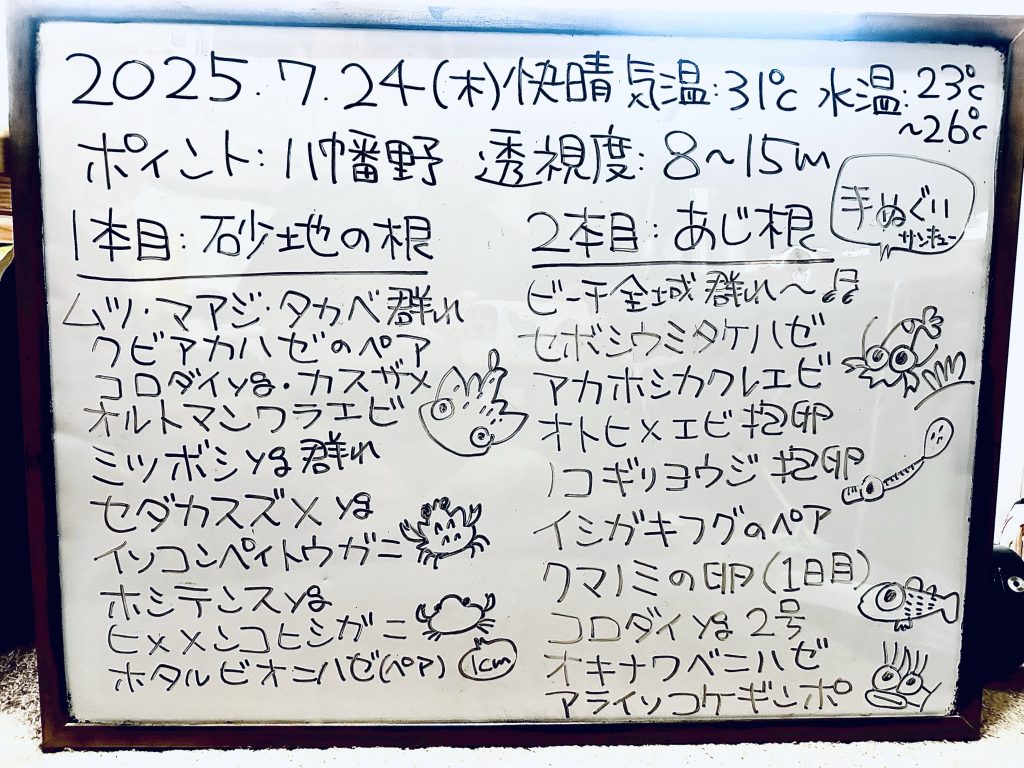 2025.7.24(木)快晴 気温:31℃ 水温:23℃
~26℃
ポイント:八幡野 透視度:8~15m
手ぬぐい
サンキュー
1本目:砂地の根
ムツ・マアジ・タカベ群れ
クビアカハゼのペア
コロダイyg・カスザメ
オルトマンワラエビ
ミツボシyg群れ
セダカスズメyg
イソコンペイトウガニ
ホシテンスyg
ヒメメンコヒシガニ
ホタルビオニハゼ(ペア) 1cm
2本目:あじ根
ビーチ全域群れ~♫
セボシウミタケハゼ
アカホシカクレエビ
オトヒメエビ抱卵
ノコギリヨウジ抱卵
イシガキフグのペア
クマノミの卵(1日目)
コロダイyg2号
オキナワベニハゼ
アライソコケギンポ